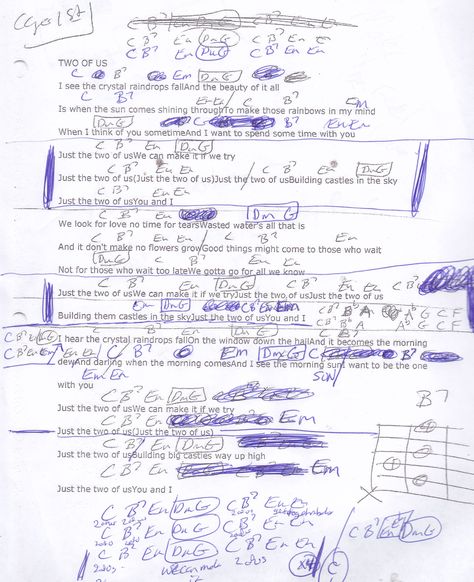 Capo 1st
C B7 Em Dm G C B7 Em Em
C B7 Em Dm G C B7 Em Em
C B7 Em Dm G C B7 Em Em
TWO OF US
C B7 Em Dm G
I see the crystal raindrops fallAnd the beauty of it all
C B7 Em Em / C B7 Em
Is when the sun comes shining throughTo make those rainbows in my mind
Dm G C B7 Em Em
When I think of you sometimeAnd I want to spend some time with you
C B7 Em Dm G
Just the two of usWe can make it if we try
C B7 Em Em / C B7 Em Dm G
Just the two of us(Just the two of us)Just the two of usBuilding castles in the sky
C B7 Em Em
Just the two of usYou and I
C B7 Em Dm G
We look for love no time for tearsWasted water's all that is
C B7 Em Em / C B7 Em
And it don't make no flowers growGood things might come to those who wait
Dm G C B7 Em Em
Not for those who wait too lateWe gotta go for all we know
C B7 Em Dm G C B7
Just the two of usWe can make it if we tryJust the two of usJust the two of us
Em Dm G C B7 Em Em
Building them castles in the skyJust the two of usYou and I
C B7 Bb A Ab G C F
C B7 Bb A Ab G C F
C B7 Em Dm G
I hear the crystal raindrops fallOn the window down the hallAnd it becomes the morning
C B7 Em Em / C B7 Em Dm G C B7 Em
dewAnd darling when the morning comesAnd I see the morning sunI want to be the one
Em Em SUN
with you
C B7 Em Dm G
Just the two of usWe can make it if we try
C B7 Em Em
Just the two of us(Just the two of us)
C B7 Em Dm G
Just the two of usBuilding big castles way up high
C B7 Em Em
Just the two of usYou and I
B7
C B7 Em Dm G C B7 Em Em
C B7 Em Dm G C B7 Em Em
C B7 Em Dm G C B7 Em Em
we can make it
x4
C
C B7 Em Dm G